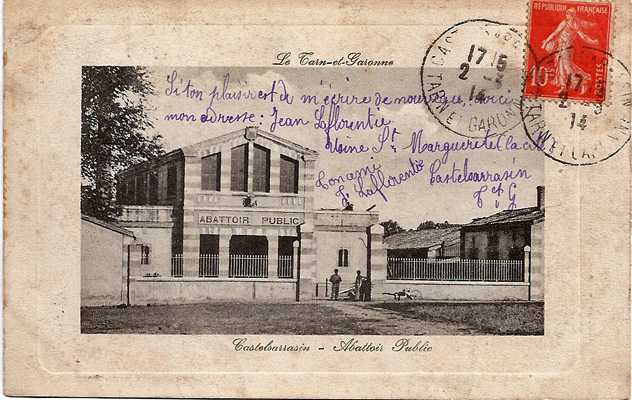 Le Tarn-et-Garonne
RÉPUBLIQUE FRANÇAISE
10c
POSTES
17 15
2 - 3
14
TARN-ET-GARONNE
17
2 3
14
TARN ET GARONNE
Si ton plaisir est de m'écrire de nouveau, voici
mon adresse : Jean Laflorentie
Usine Ste Marguerite
Ton ami
Castelsarrasin
J. Laflorentie
T et G
ABATTOIR PUBLIC
Castelsarrasin - Abattoir Public